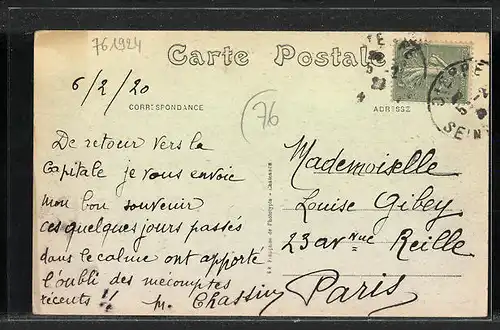 76 1924
Carte Postale
6/2/20
CORRESPONDANCE
ADRESSE
76
De retour vers la
Capitale je vous envoie
mon bon souvenir
ces quelques jours passés
dans le calme ont apporté
l'oubli des mécomptes
récents !!
M. Chassin
Mademoiselle
Louise Gibey
23 av nue Reille
Paris
SEINE